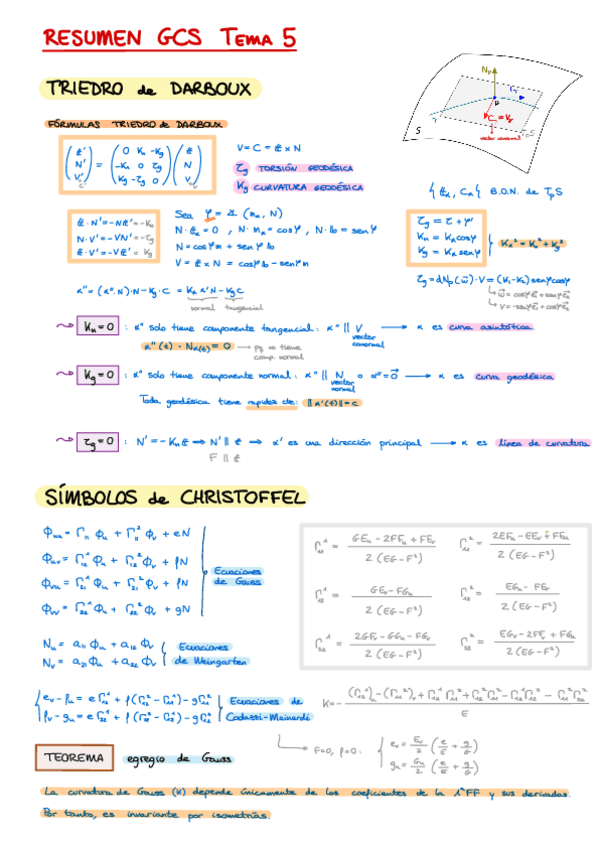 RESUMEN GCS TEMA 5
TRIEDRO de DARBOUX
FÓRMULAS TRIEDRO de DARBOUX
(t' N' V') = (0 Kn -Kg / -Kn 0 τg / Kg -τg 0) (t N V)
V = C = t × N
τg TORSIÓN GEODÉSICA
Kg CURVATURA GEODÉSICA
{tα, Cα} B.O.N. de TpS
t·N' = -Nt' = -Kn
N·V' = -VN' = -τg
t·V' = -Vt' = Kg
Sea φ = ∡ (nα, N)
N·tα = 0 , N·nα = cosφ , N·b = senφ
N = cosφ n + senφ b
V = t × N = cosφ b - senφ n
τg = τ + φ'
Kn = Kα cosφ
Kg = Kα senφ
Kα² = Kn² + Kg²
τg = dNp(w)·V = (K1-K2) senφ cosφ
w = cosφ e1 + senφ e2
V = -senφ e1 + cosφ e2
α'' = (α''·N)·N - Kg·C = Kα α'N - Kg C
normal tangencial
Kn = 0 : α'' solo tiene componente tangencial: α'' || V → α es curva asintótica
vector conormal
α''(t) · Nα(t) = 0 → pq no tiene comp. normal
Kg = 0 : α'' solo tiene componente normal: α'' || N o α'' = 0 → α es curva geodésica
vector normal
Toda geodésica tiene rapidez cte: ||α'(t)|| = c
τg = 0 : N' = -Kn t ⇒ N' || t ⇒ α' es una dirección principal → α es línea de curvatura
F || t
SÍMBOLOS de CHRISTOFFEL
Φuu = Γ11¹ Φu + Γ11² Φv + eN
Φuv = Γ12¹ Φu + Γ12² Φv + fN
Φvu = Γ21¹ Φu + Γ21² Φv + fN
Φvv = Γ22¹ Φu + Γ22² Φv + gN
Ecuaciones de Gauss
Γ11¹ = (GEu - 2FFu + FEv) / 2(EG-F²)
Γ11² = (2EFu - EEv + FEu) / 2(EG-F²)
Γ12¹ = (GEv - FGu) / 2(EG-F²)
Γ12² = (EGu - FEv) / 2(EG-F²)
Γ22¹ = (2GFv - GGu - FGv) / 2(EG-F²)
Γ22² = (EGv - 2FFv + FGu) / 2(EG-F²)
Nu = a11 Φu + a12 Φv
Nv = a21 Φu + a22 Φv
Ecuaciones de Weingarten
ev - fu = eΓ12¹ + f(Γ12² - Γ11¹) - gΓ11²
fv - gu = eΓ22¹ + f(Γ22² - Γ12¹) - gΓ12²
Ecuaciones de Codazzi-Mainardi
K = - ((Γ12²)u - (Γ11²)v + Γ12¹Γ11² + Γ12²Γ12² - Γ11²Γ22² - Γ11¹Γ12²) / E
F=0, f=0: ev = Ev/2 (e/E + g/G)
gu = Gu/2 (e/E + g/G)
TEOREMA egregio de Gauss
La curvatura de Gauss (K) depende únicamente de los coeficientes de la 1ªFF y sus derivadas.
Por tanto, es invariante por isometrías.